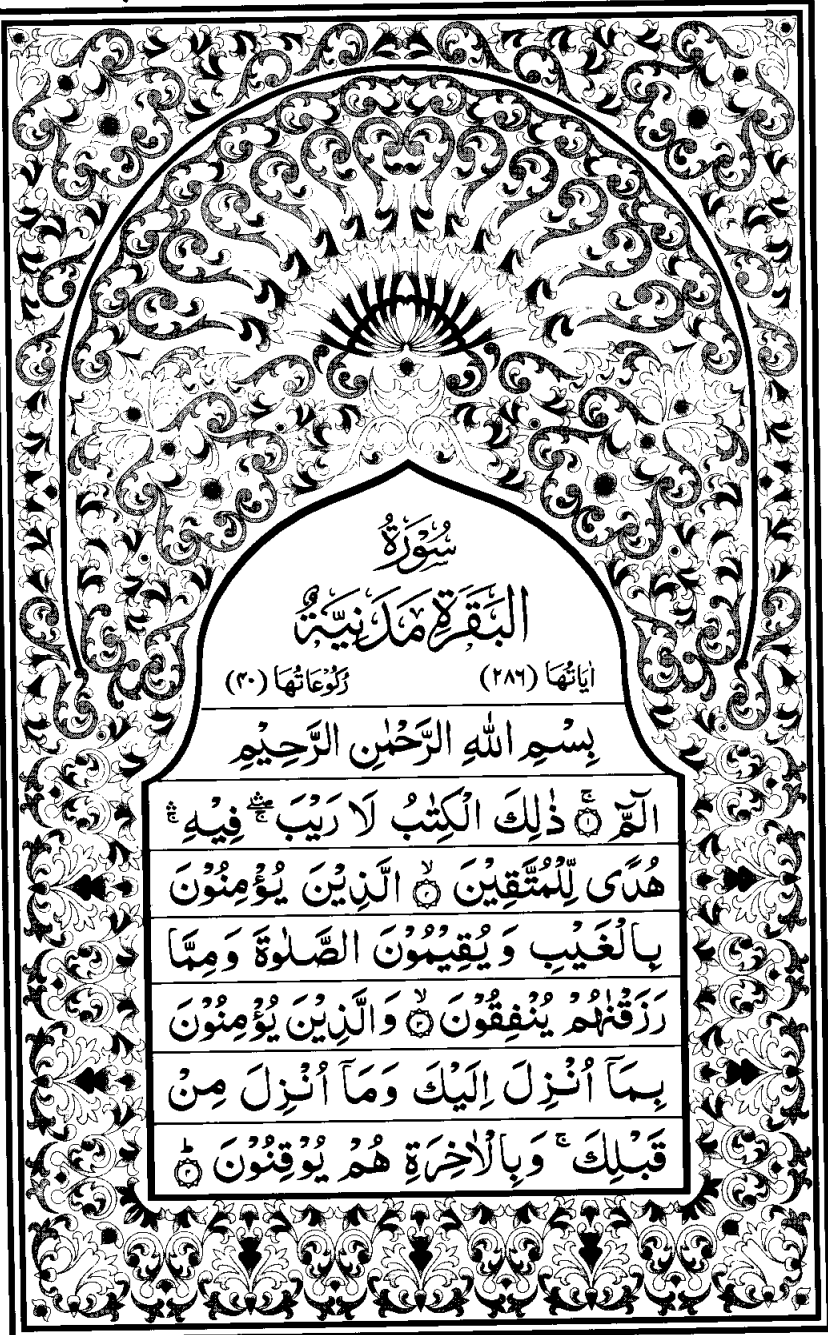 سُوْرَةُ
الْبَقَرَةِ مَدَنِيَّةٌ
اٰيَاتُهَا (۲۸۶) رُكُوْعَاتُهَا (۴۰)
بِسْمِ اللّٰهِ الرَّحْمٰنِ الرَّحِيْمِ
الٓمّٓ ۚ‏﴿۱﴾ ذٰلِكَ الْكِتٰبُ لَا رَيْبَ ۛۚ فِيْهِ ۛۚ
هُدًى لِّلْمُتَّقِيْنَ ۙ‏﴿۲﴾ الَّذِيْنَ يُؤْمِنُوْنَ
بِالْغَيْبِ وَيُقِيْمُوْنَ الصَّلٰوةَ وَمِمَّا
رَزَقْنٰهُمْ يُنْفِقُوْنَ ۙ‏﴿۳﴾ وَالَّذِيْنَ يُؤْمِنُوْنَ
بِمَآ اُنْزِلَ اِلَيْكَ وَمَآ اُنْزِلَ مِنْ
قَبْلِكَ ۚ وَبِالْاٰخِرَةِ هُمْ يُوْقِنُوْنَ ؕ‏﴿۴﴾